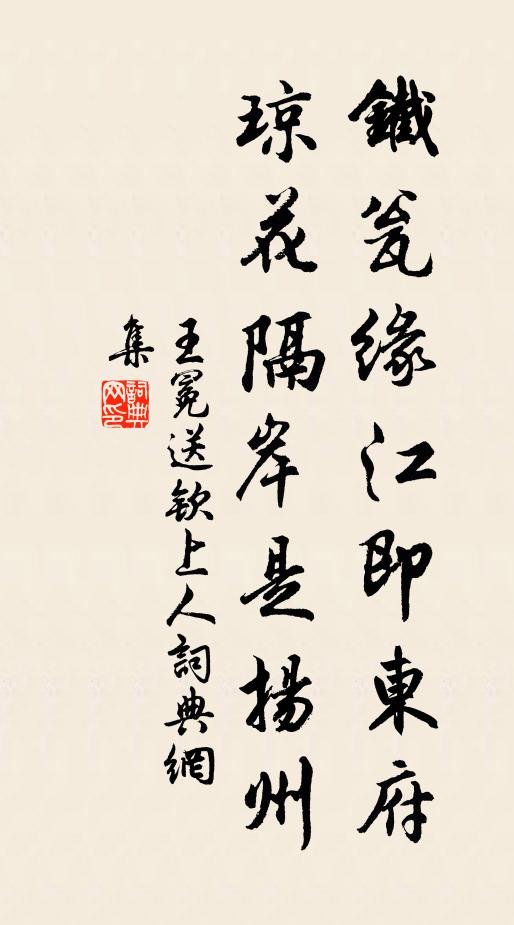 鐵瓮緣江即東府
琼花隔岸是揚州
王冕送欽上人詞典網
集
詞典
网印